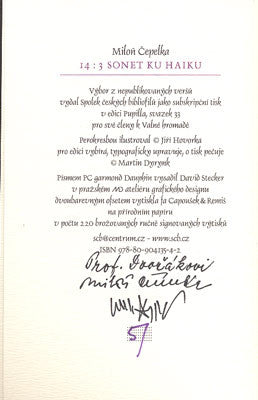 Miloň Čepelka
14 : 3 SONET KU HAIKU
Výbor z nepublikovaných veršů
vydal Spolek českých bibliofilů jako subskripční tisk
v edici Pupilla, svazek 33
pro své členy k Valné hromadě
Perokresbou ilustroval © Jiří Hovorka
pro edici vybírá, typograficky upravuje, o tisk pečuje
© Martin Dyrynk
Písmem PC garmond Dauphin vysadil David Stecker
v pražském MD ateliéru grafického designu
dvoubarevným ofsetem vytiskla fa Capoušek & Remiš
na přírodním papíru
v počtu 220 brožovaných ručně signovaných výtisků
scb@centrum.cz - www.scb.cz
ISBN 978-80-904135-4-2
Prof. Dvořákovi
57